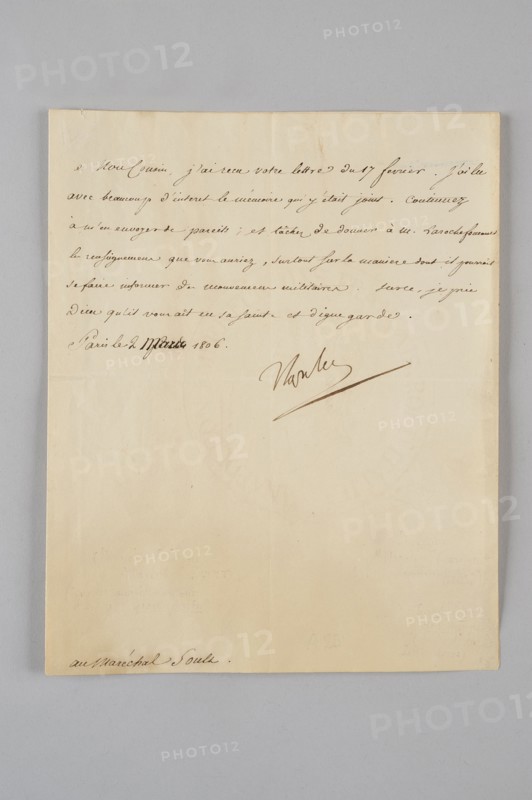 Mon Cousin, j'ai recu votre lettre du 17 fevrier. J'ai lu
avec beaucoup d'interet le mémoire qui y était joint. Continuez
à m'en envoyer de pareils; et tâchez de donner à M. Larochefoucault
les renseignemens que vous auriez, surtout sur la maniere dont il pourrait
se faire informer des mouvemens militaires. Surce, je prie
Dieu qu'il vous ait en sa sainte et digne garde.
Paris le 2 1806.
au Maréchal Soult.
PHOTO12
PHOTO12
PHOTO12
PHOTO12
PHOTO12
PHOTO12
PHOTO12
PHOTO12
PHOTO12
PHOTO12
PHOTO12
PHOTO12